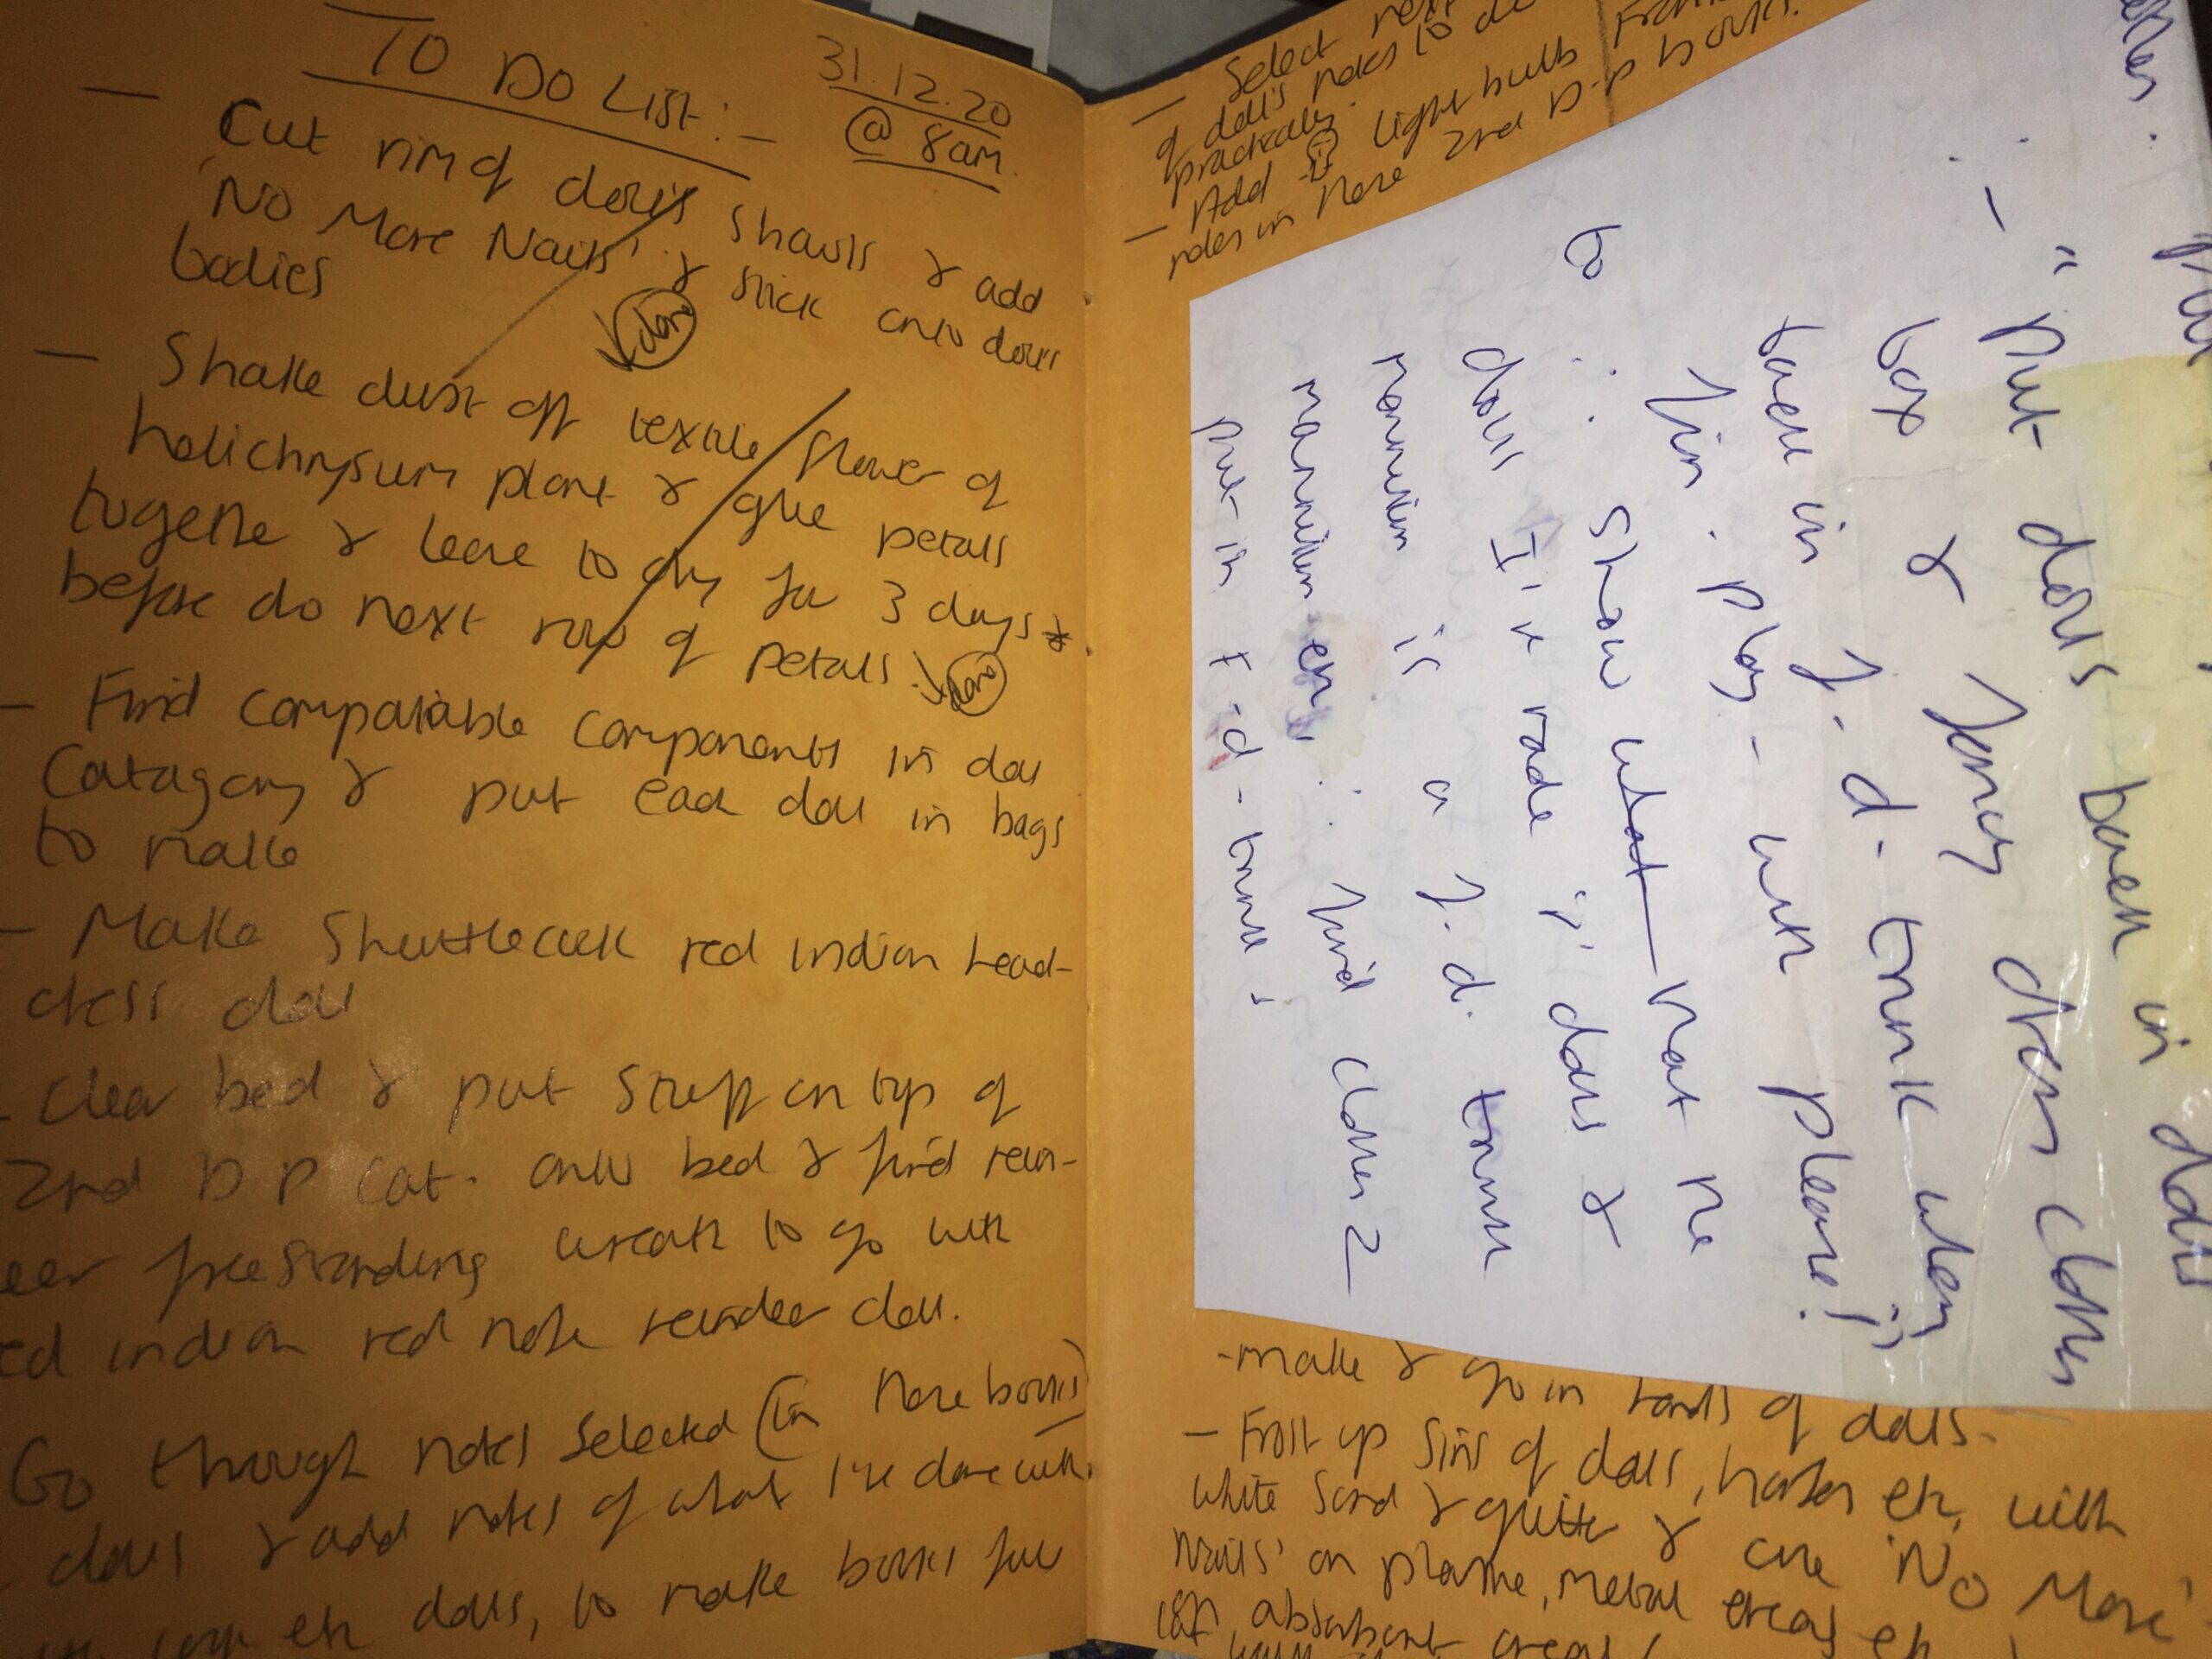 TO DO LIST:-
31.12.20
@ 8am.
— Cut rim of doll's shawls & add
'No More Nails' & stick onto dolls
bodies
done
— Shake dust off textile flower of
helichrysum plant & glue petals
together & leave to dry for 3 days &
before do next row of petals.
done
- Find compatable components in doll
Catagory & put each doll in bags
to make
- Make Shuttlecock red indian head-
dress doll
- Clear bed & put stuff on top of
2nd D P Cat. onto bed & find rein-
eer freestanding wreath to go with
ed indian red nose reindeer doll.
Go through notes selected (in
dolls & add notes of what I've done with
etc dolls, to make books full
— Select
of doll's notes to do
practically.
— Add light bulb
notes in these 2nd D-P books.
- "Put dolls back in dolls
box & fancy dress clothes
back in f.d. trunk when
fin. play- with please!"
to ∴ show what not the
dolls I've made is dolls &
mannikin is a f.d. trunk
mannikin ∴ find clothes 2
put in f-d-trunk!
-make & go in hands of dolls.
— Frost up skins of dolls, etc, with
white sand & glitter & use 'No More
Nails' on plastic, metal areas etc
absorbent areas